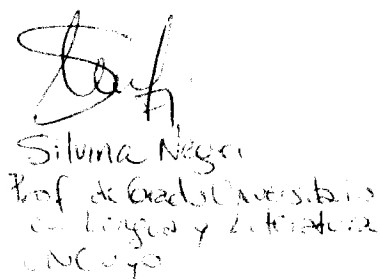 Silvina Negri
Prof de Grado Universitario
en Lengua y Literatura
UNCuyo